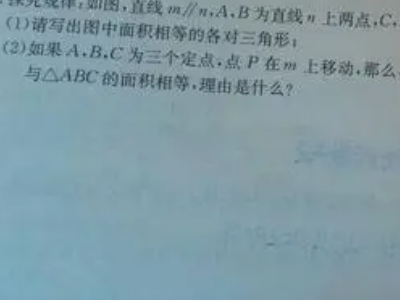 探究规律:如图,直线 m∥n,A、B 为直线 n 上两点,C、
(1)请写出图中面积相等的各对三角形;
(2)如果 A、B、C 为三个定点,点 P 在 m 上移动,那么
与△ABC 的面积相等,理由是什么?